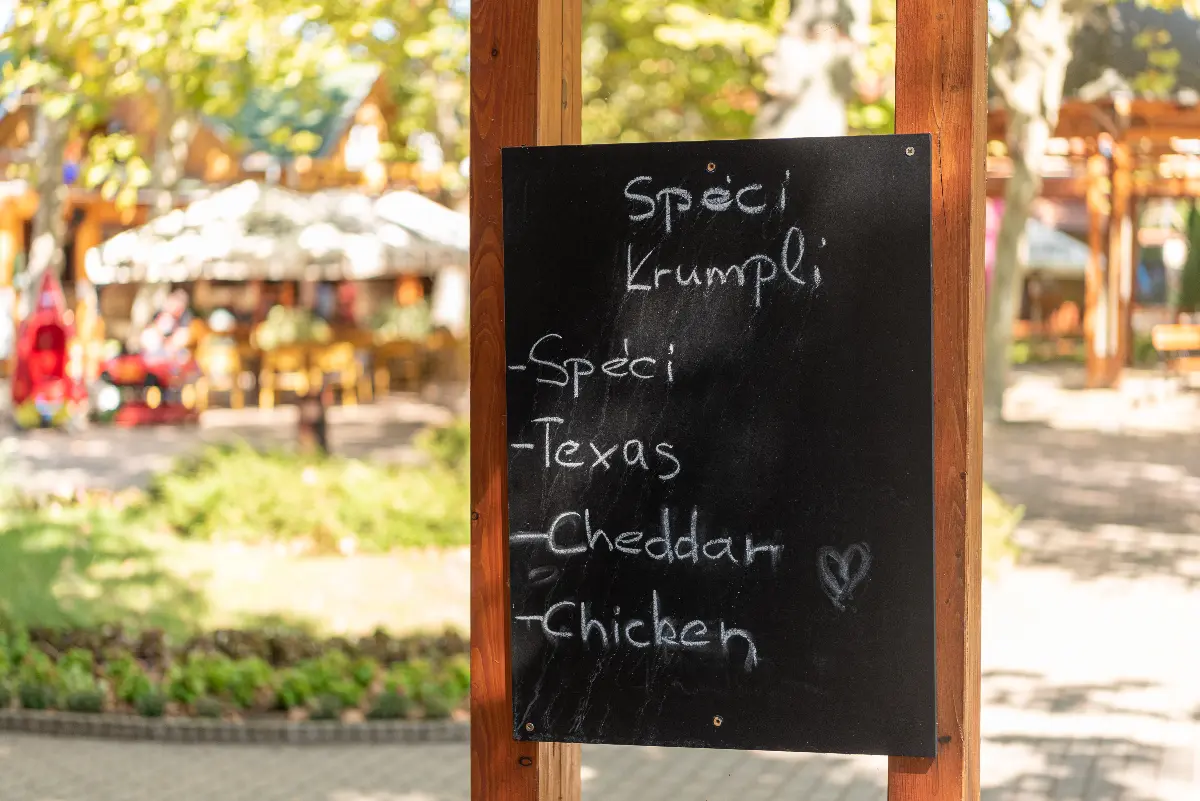 Spéci
Krumpli
-Spéci
-Texas
-Cheddar
-Chicken